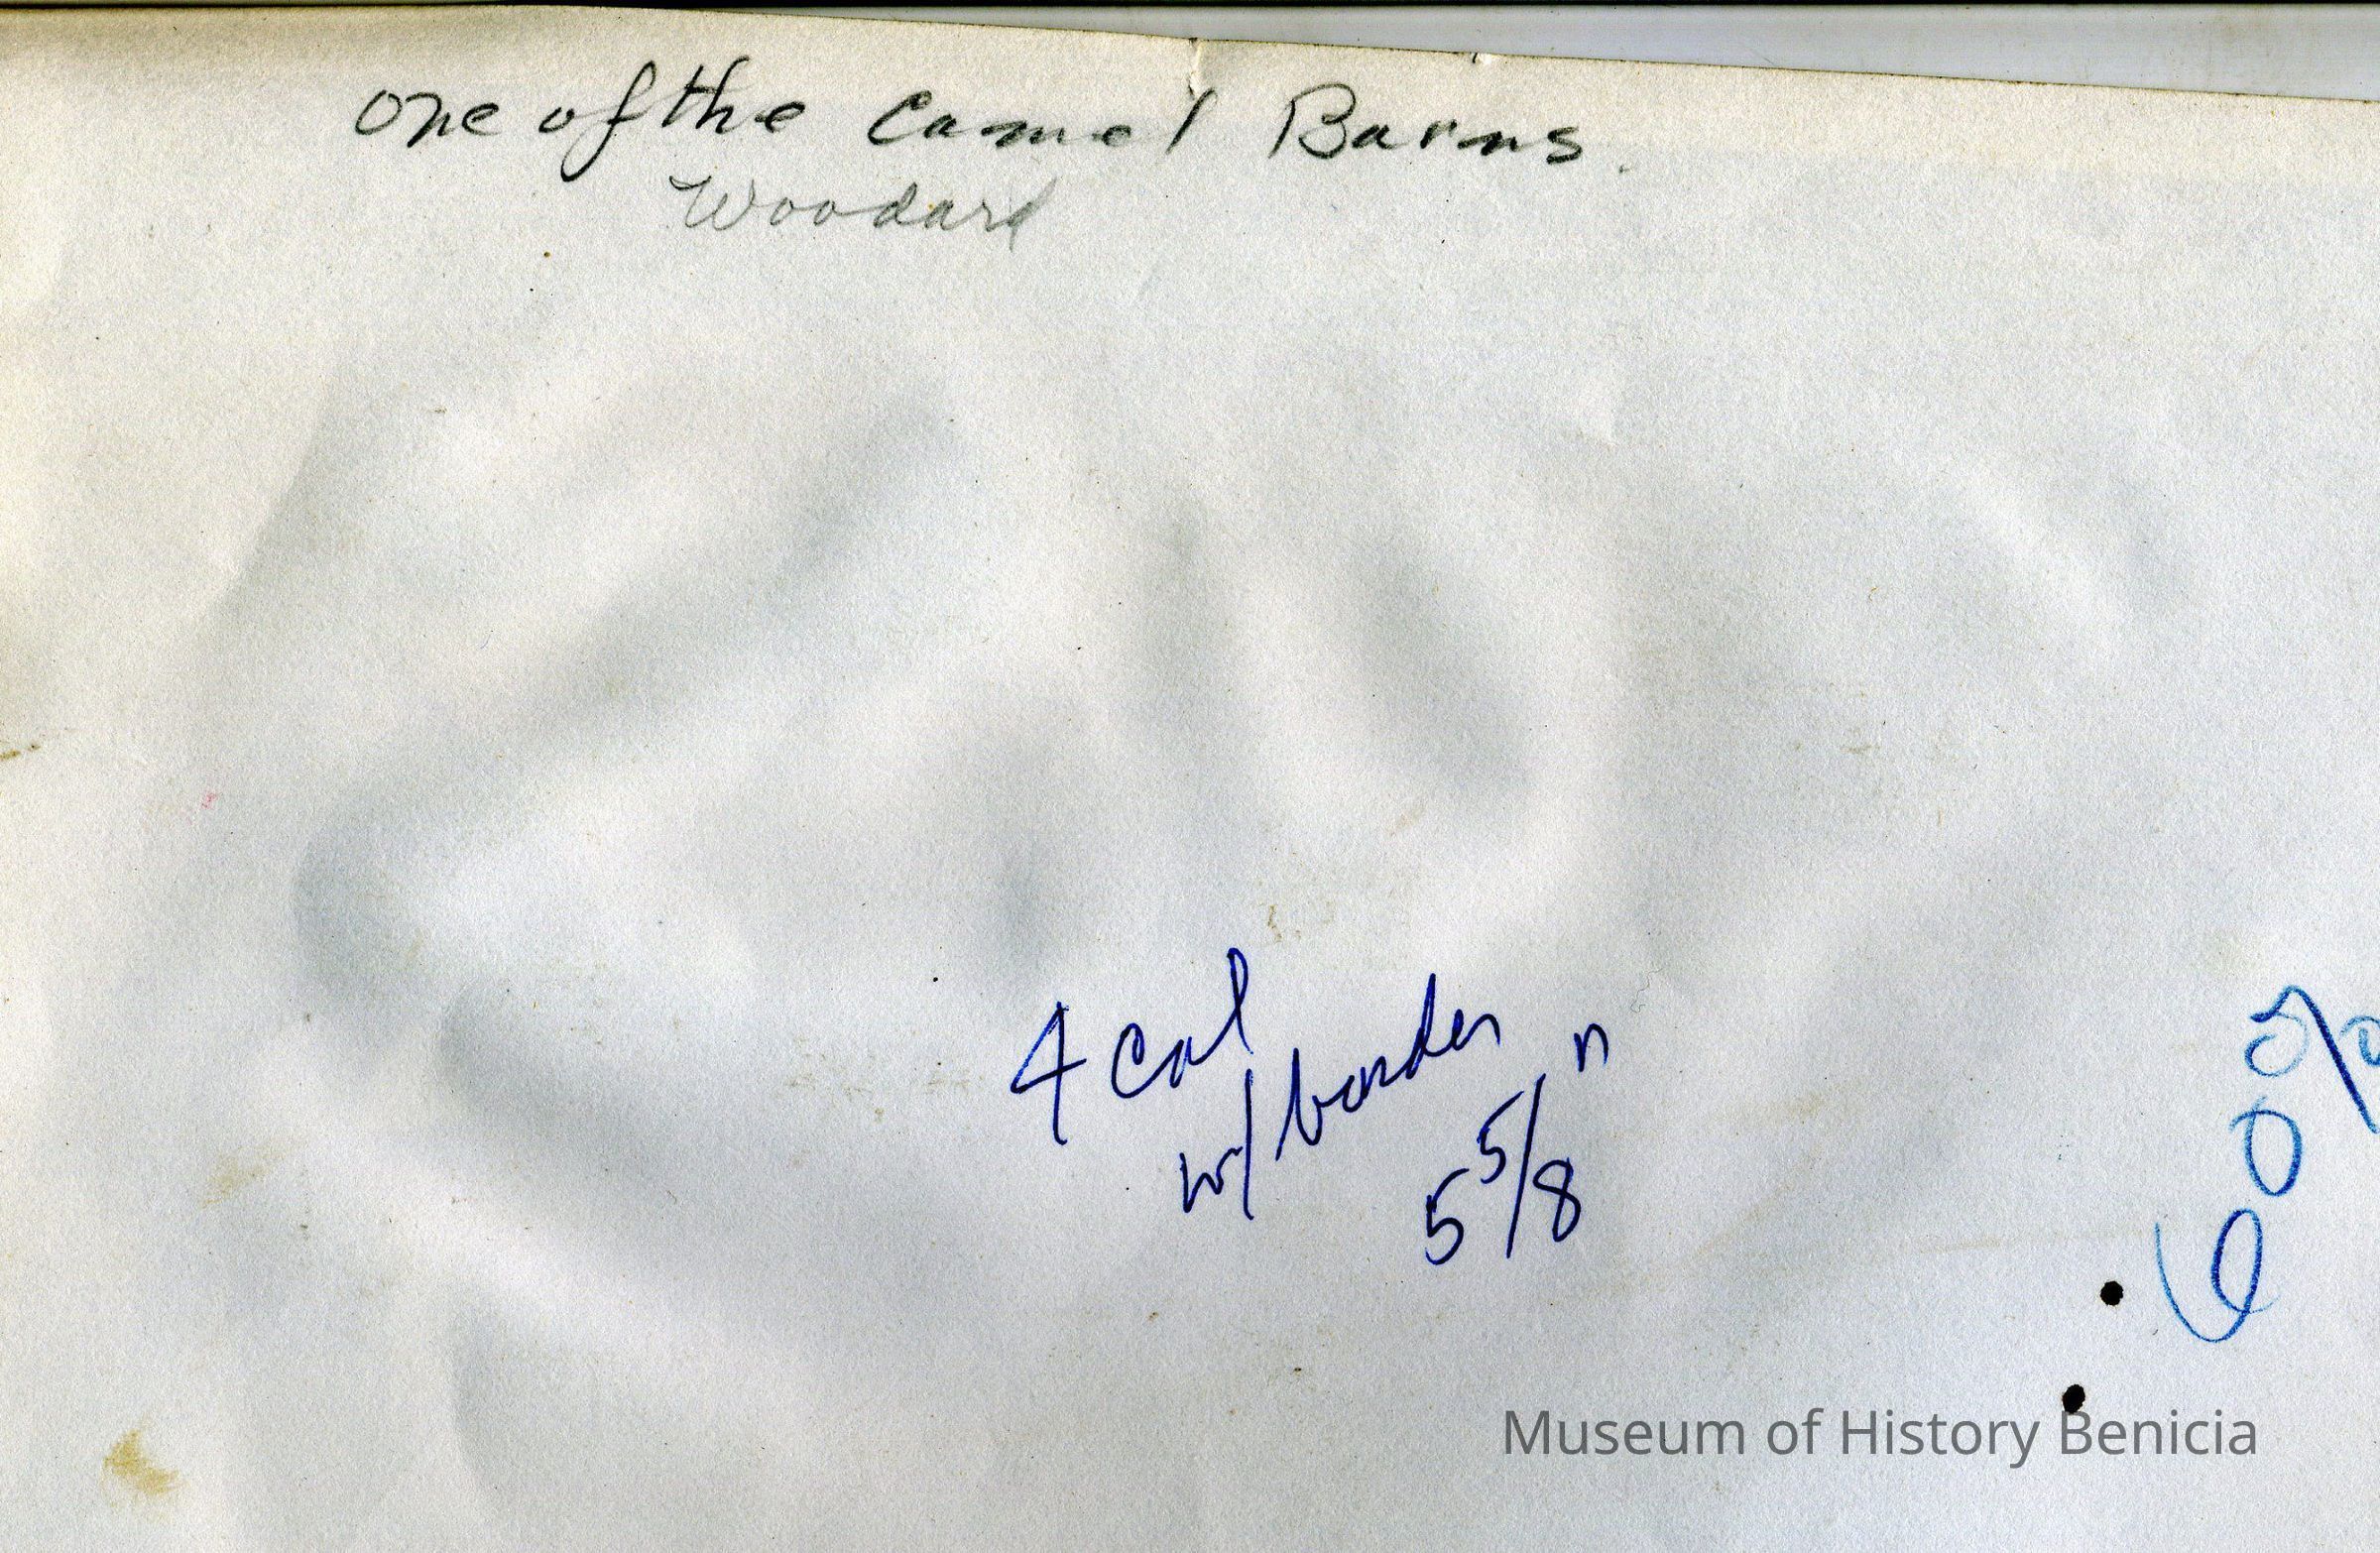 One of the Camel Barns.
Woodard
4 col
w/ border
5 5/8"
60%
Museum of History Benicia